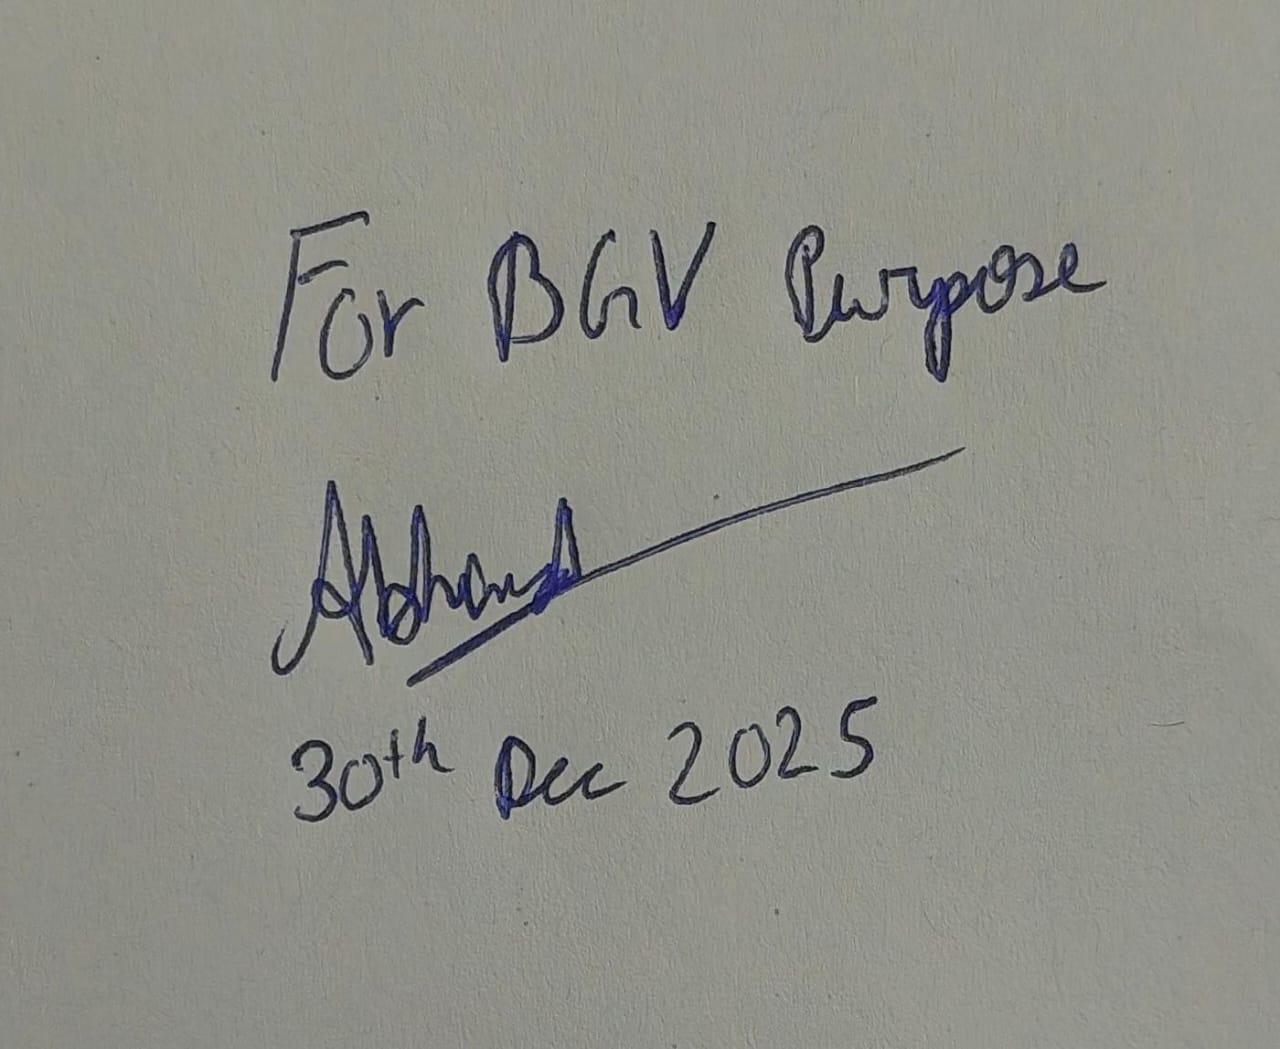 For BGV Purpose
30th Dec 2025